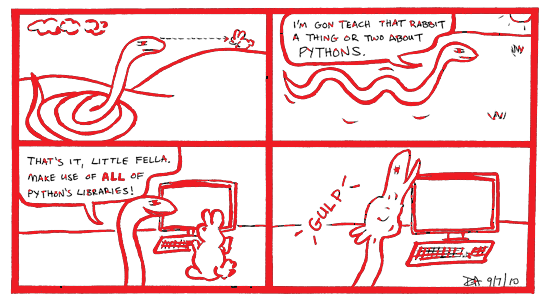 I'M GON TEACH THAT RABBIT
A THING OR TWO ABOUT
PYTHONS.
THAT'S IT, LITTLE FELLA.
MAKE USE OF ALL OF
PYTHON'S LIBRARIES!
GULP
DA 9/7/10